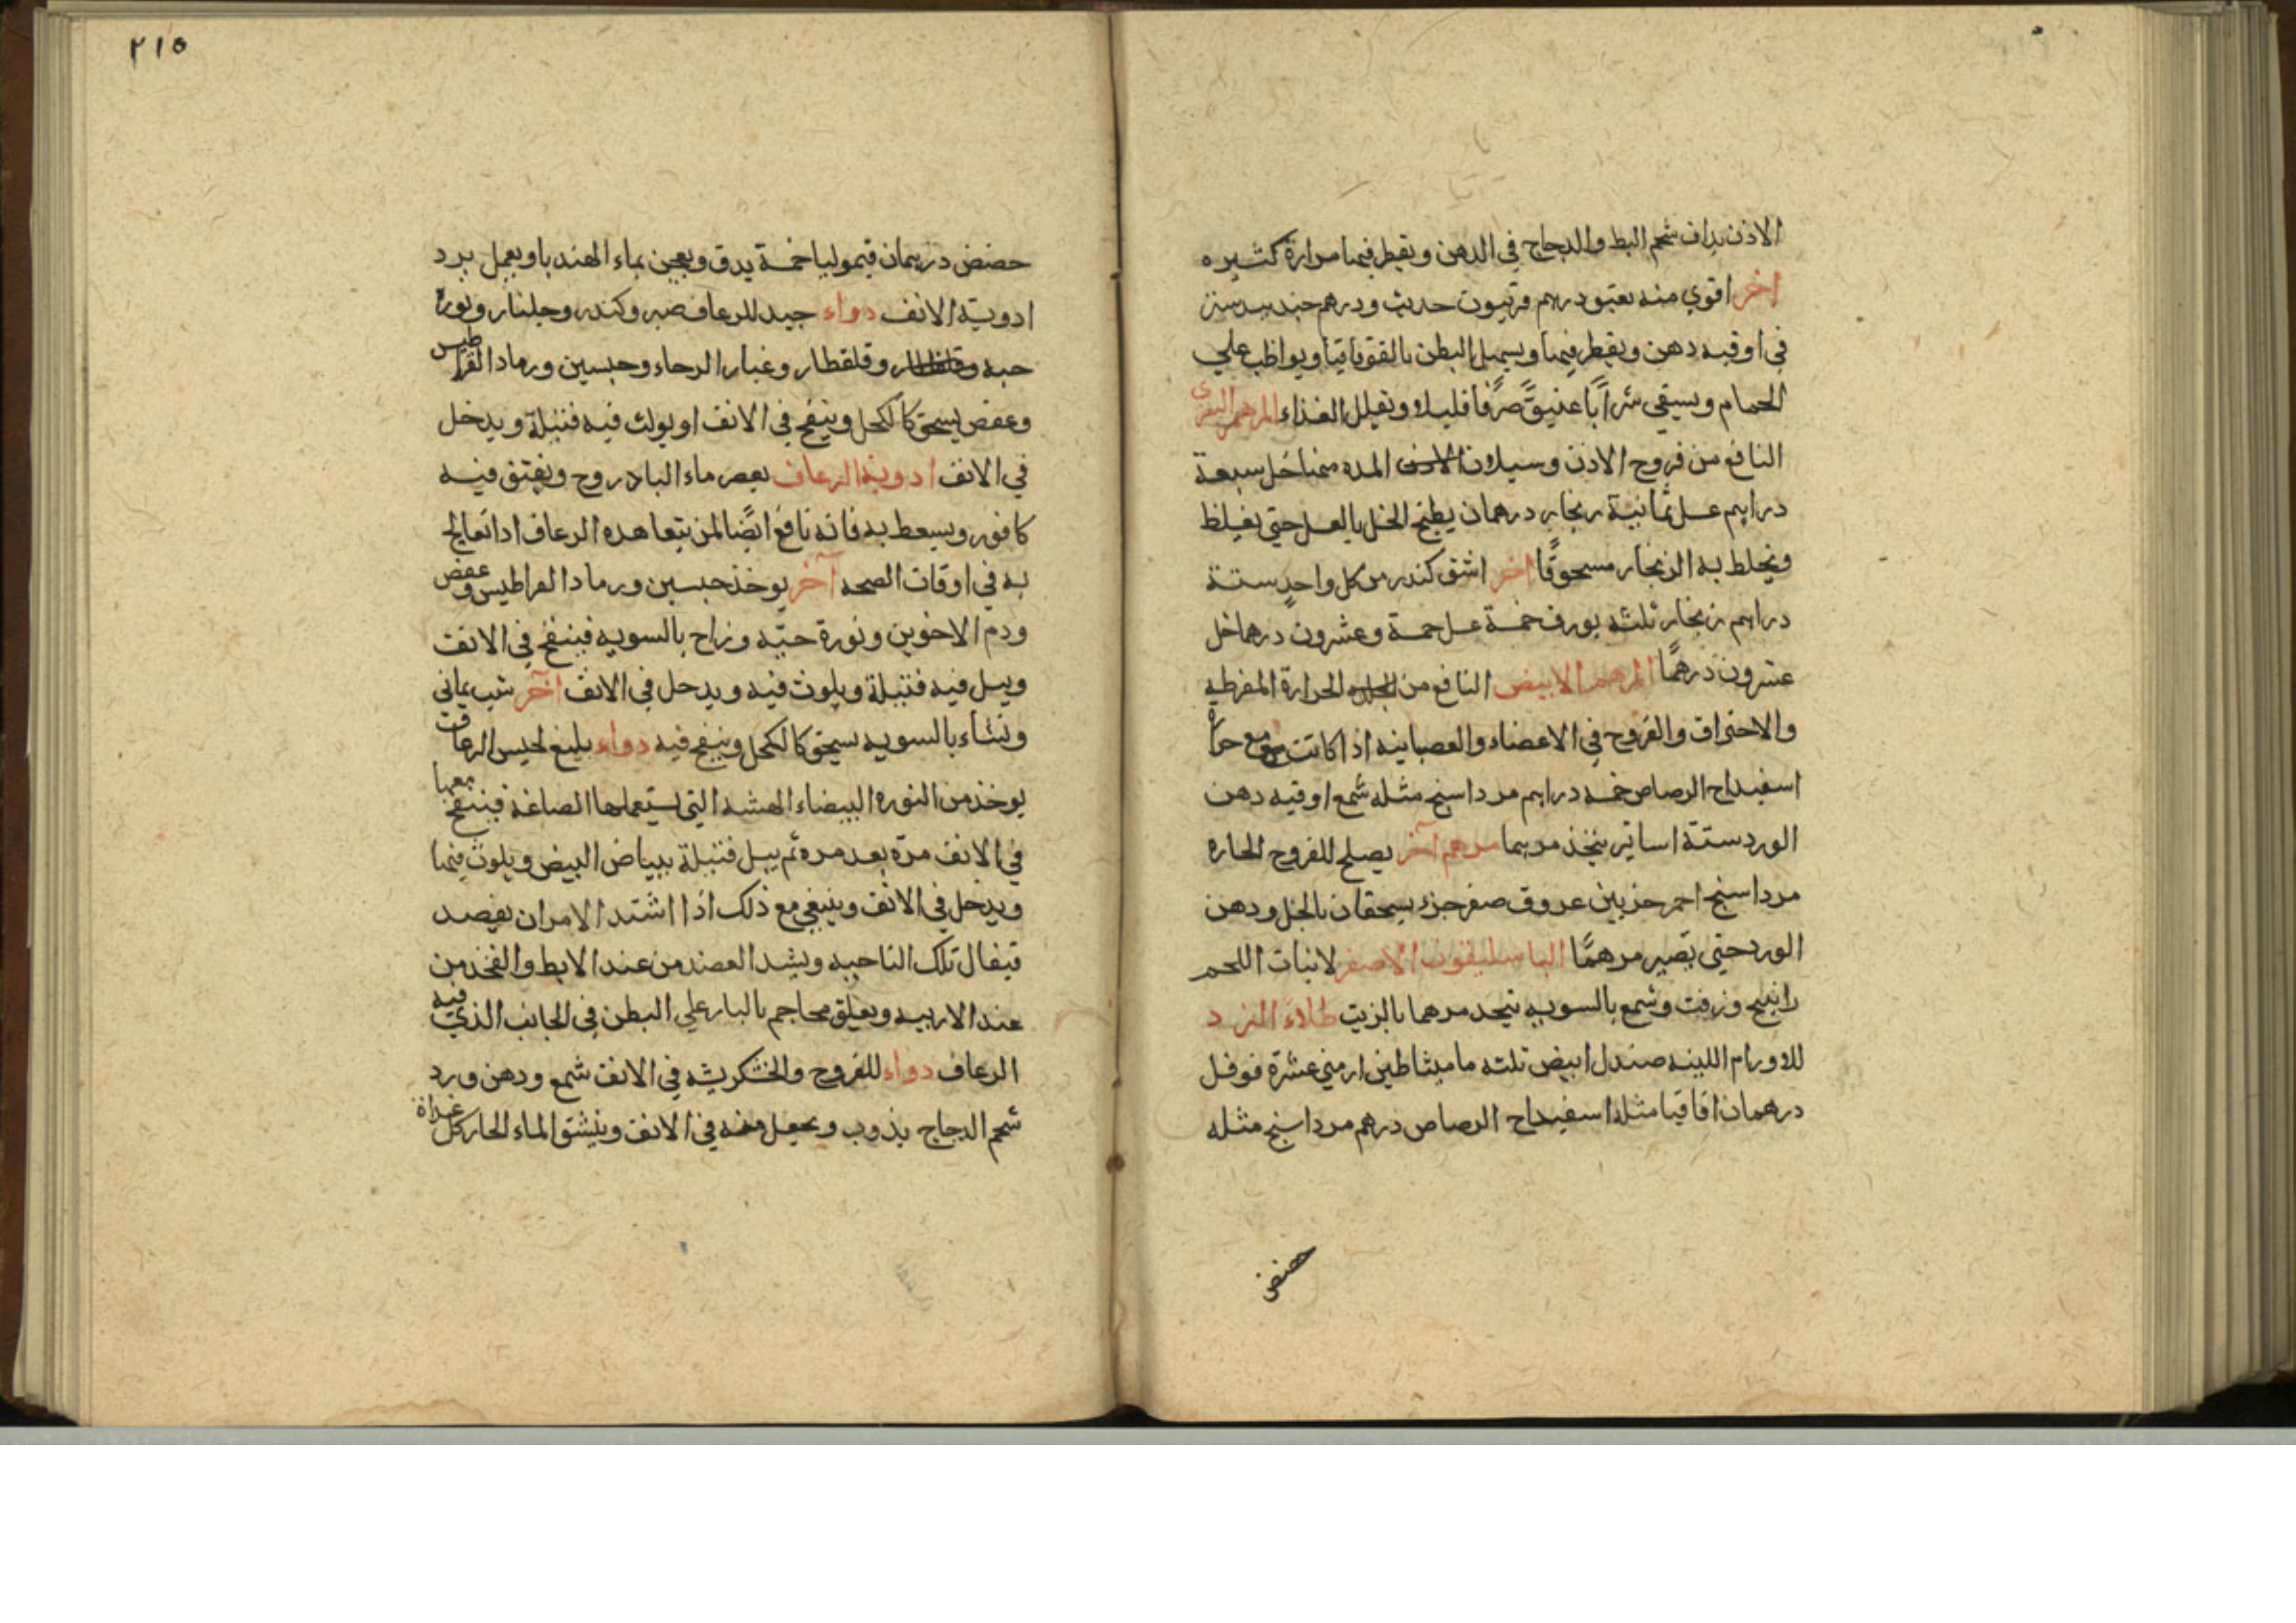 الاذن يداف شحم البط والدجاج في الدهن ويقطر فيها مرارة كثيره
اخر اقوي منه يعتبق درهم فربيون حديث ودرهم جندبيدستر
في اوقيه دهن ويقطر فيها ويسهل البطن بالقوقايا ويواظب علي
الحمام ويسقي شراًبًا عتيقًّ صرفًا قليلا ويقلل الغذاء المرهم
النافع من قروح الاذن وسيلان المده منها خل سبعة
دراهم عسل ثمانية زنجار درهمان يطبخ الخل بالعسل حتي يغلظ
ويخلط به الزنجار مسحوقًا اخر اشق كندر من كل واحدٍ ستة
دراهم زنجار ثلثه بورق خمسة عسل خمسة وعشرون درهما خل
عشرون درهمًا المرهم الابيض النافع من الحرارة المفرطه
والاحتراق والقروح في الاعضاء والعصبانيه اذا كانت مع حرارة
اسفيداج الرصاص خمسه دراهم مرداسنج مثله شمع اوقيه دهن
الورد ستة اساتير يتخذ مرهما مرهم آخر يصلح للقروح الحاره
مرداسنج احمر جزيين عروق صفر جزء يسحقان بالخل ودهن
الورد حتي تصير مرهمًا الباسليقون الاصفر لانبات اللحم
راتينج وزفت وشمع بالسويه يتخذ مرهما بالزيت طلاء البرد
للاورام اللينه صندل ابيض ثلثه ماميثا طين ارمني عشرة فوفل
درهمان اقاقيا مثله اسفيداج الرصاص درهم مرداسنج مثله
حضض
٢١٥
حضض درهمان قيموليا خمسة يدق ويعجن بماء الهندبا ويعمل برد
ادوية الانف دواء جيد للرعاف صبر وكندر وجلنار ونورة
حيه وقلقطار وغبار الرحاء وجبسين ورماد القراطيس
وعفص يسحق كالكحل وينفخ في الانف او يولث فيه فتيلة ويدخل
في الانف ادوية الرعاف يعصر ماء البادروج ويفتق فيه
كافور ويسعط به فانه نافع ايضًا لمن يتعاهده الرعاف اذا تعالج
به في اوقات الصحه آخر يوخذ جبسين ورماد القراطيس وعفص
ودم الاخوين ونورة حيّه وزاج بالسويه فينفخ في الانف
ويبل فيه فتيلة ويلوث فيه ويدخل في الانف آخر شب يماني
ونشاء بالسويه يسحق كالكحل وينفخ فيه دواء بليغ لحبس الرعاف
يوخذ من النوره البيضاء الهشه التي يستعملها الصاغه فينفخ معها
في الانف مرّه بعد مره ثم يبل فتيلة ببياض البيض ويلوث فيها
ويدخل في الانف وينبغي مع ذلك اذا اشتد الامر ان يفصد
قيفال تلك الناحيه ويشد العضد من عند الابط والفخذ من
عند الاربيه ويعلق محاجم بالنار علي البطن في الجانب الذي فيه
الرعاف دواء للقروح والخشكريشه في الانف شمع ودهن ورد
شحم الدجاج يذوب ويجعل منه في الانف وينشق الماء الحار كل غداة